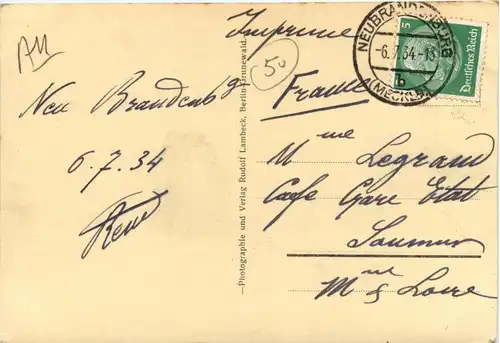 Imprime
50
Neu Brandenbg
6.7.34
René
Photographie und Verlag Rudolf Lambeck, Berlin-Grunewald.
NEUBRANDENBURG
-6.7.34-18
b
(MECKLB)
5
Deutsches Reich
France
Mme Legrand
Cafe Gare Etat
Saumur
Mne & Loire